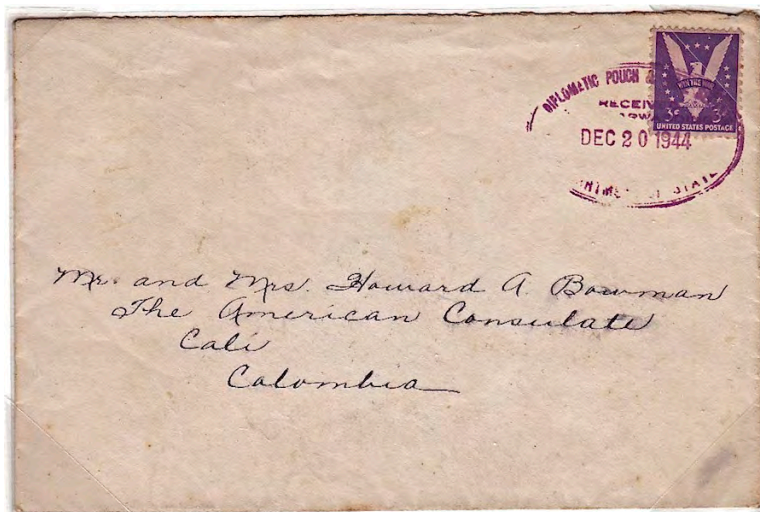 DIPLOMATIC POUCH &
RECEIV
DEC 20 1944
STATE
WIN THE WAR
3¢ 3¢
UNITED STATES POSTAGE
Mr. and Mrs. Howard A. Bowman
The American Consulate
Cali
Colombia